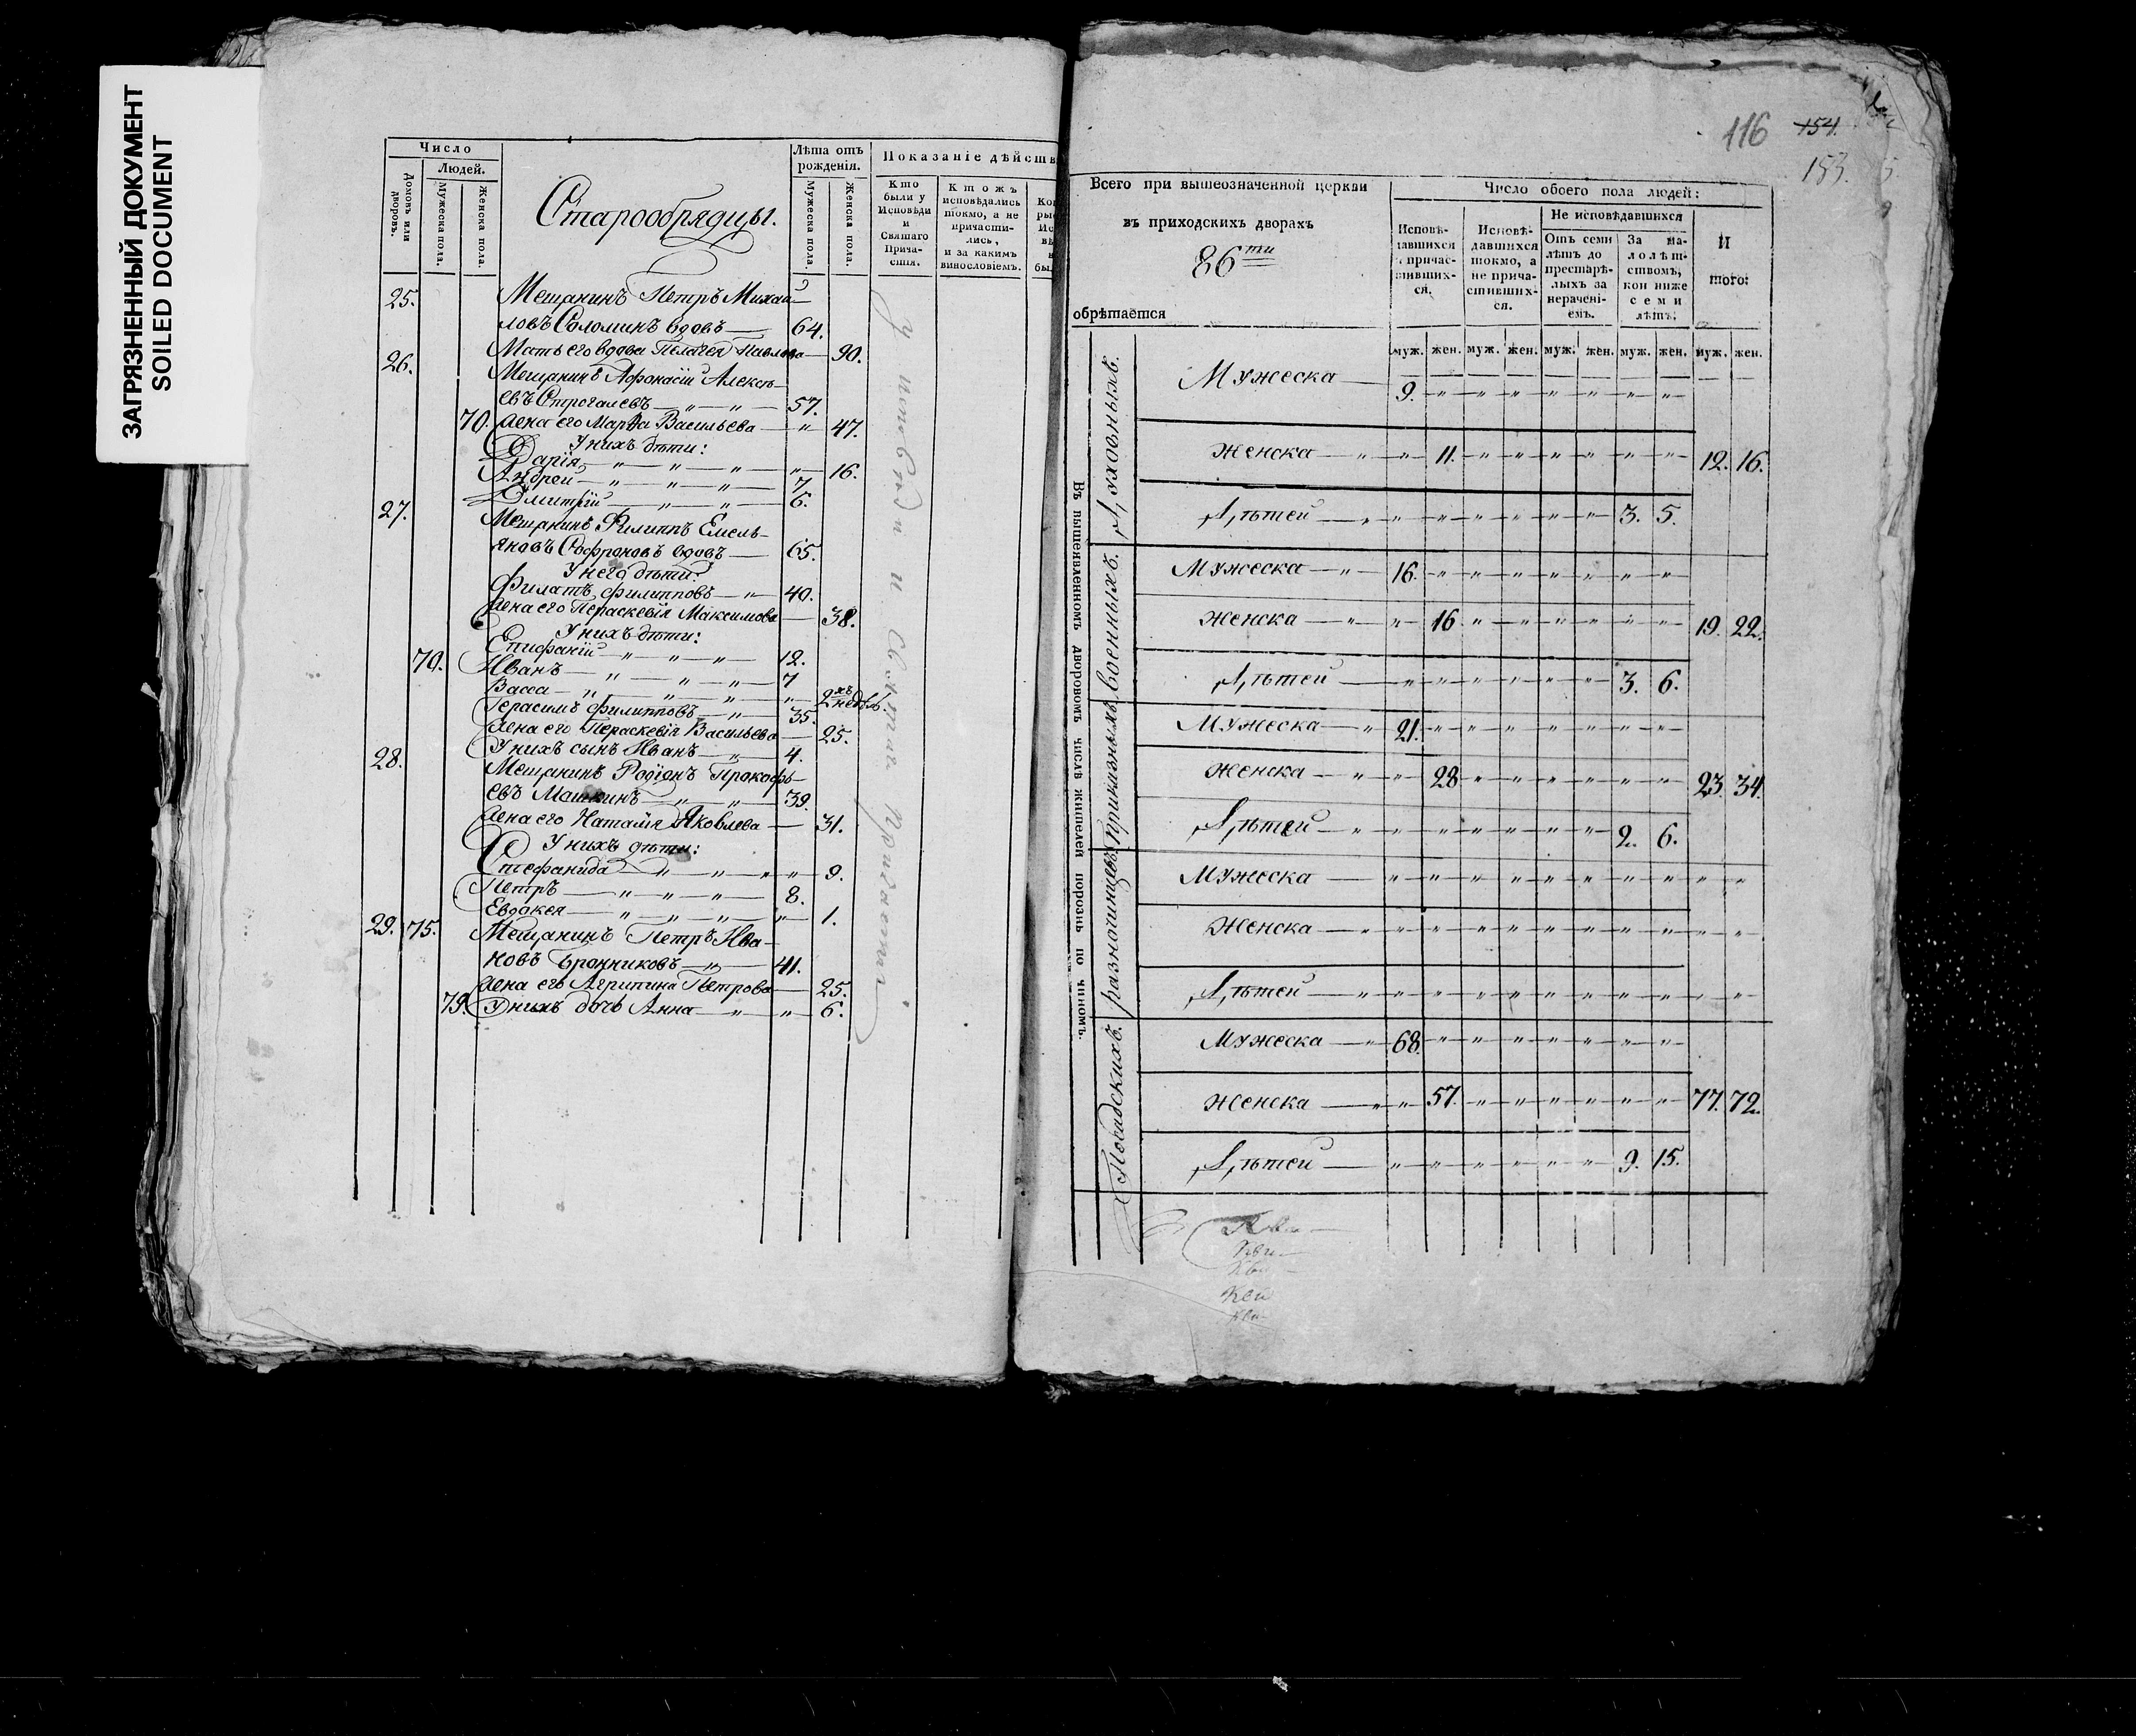 ЗАГРЯЗНЕННЫЙ ДОКУМЕНТ
SOILED DOCUMENT
Число
Людей.
Домовъ или дворовъ.
Мужеска пола.
Женска пола.
Старообрядцы.
Лѣта отъ рожденія.
Мужеска пола.
Женска пола.
Показаніе дѣйств
Кто были у Исповѣди и Святаго Причастія.
Ктожъ исповѣдались токмо, а не причастились, и за какимъ винословіемъ.
25. Мещанинъ Петръ Михай-
ловъ Соломинъ вдовъ — 64.
Мать его вдова Пелагея Павлова — 90.
26. Мещанинъ Афонасій Алексѣ-
евъ Строгалевъ — „ — „ — 57.
70. Жена его Марѳа Васильева — „ 47.
У нихъ дѣти:
Дарія — „ — „ — „ — „ 16.
Андрей — „ — „ — „ — 7.
Дмитрій — „ — „ — 6.
27. Мещанинъ Филиппъ Емель-
яновъ Софроновъ вдовъ — 65.
У него дѣти:
Филатъ Филипповъ — „ — 40.
Жена его Параскевія Максимова — 38.
У нихъ дѣти:
Епифаній — „ — „ — „ — 12.
70. Иванъ — „ — „ — „ — 7
Васса — „ — „ — „ — „ 2хъ недѣль.
Герасимъ Филипповъ — „ — 35.
Жена его Пераскевія Васильева — 25.
У нихъ сынъ Иванъ — „ — 4.
28. Мещанинъ Родіонъ Прокофь-
евъ Машкинъ — „ — „ — 39.
Жена его Наталія Яковлева — 31.
У нихъ дѣти:
Стефанида — „ — „ — „ — „ 9.
Петръ — „ — „ — „ — 8.
Евдокея — „ — „ — „ — „ 1.
29. 75. Мещанинъ Петръ Ива-
новъ Бронниковъ — „ — 41.
Жена его Агрипина Петрова — 25.
79. У нихъ дочь Анна — „ — „ 6.
у исповѣди и святаго Причастія
116 154.
153.
Всего при вышеозначенной церкви
въ приходскихъ дворахъ
86ти
обрѣтается
Число обоего пола людей:
Исповѣдавшихся и причастившихся.
Исповѣдавшихся токмо, а не причастившихся.
Не исповѣдавшихся
Отъ семи лѣтъ до престарѣлыхъ за нераченіемъ.
За малолѣтствомъ, кои ниже семи лѣтъ.
И того:
муж. жен. муж. жен. муж. жен. муж. жен. муж. жен.
Въ вышеявленномъ дворовомъ числѣ жителей порознь по чиномъ.
Духовныхъ.
Мужеска — 9.
Женска — 11. 12. 16.
Дѣтей — 3. 5.
Военныхъ.
Мужеска — 16.
Женска — 16 19. 22.
Дѣтей — 3. 6.
Приказныхъ
Мужеска — 21.
Женска — 28 23. 34.
Дѣтей — 2. 6.
разночинцевъ.
Мужеска —
Женска —
Дѣтей —
Посадскихъ.
Мужеска — 68.
Женска — 57. 77. 72.
Дѣтей — 9. 15.